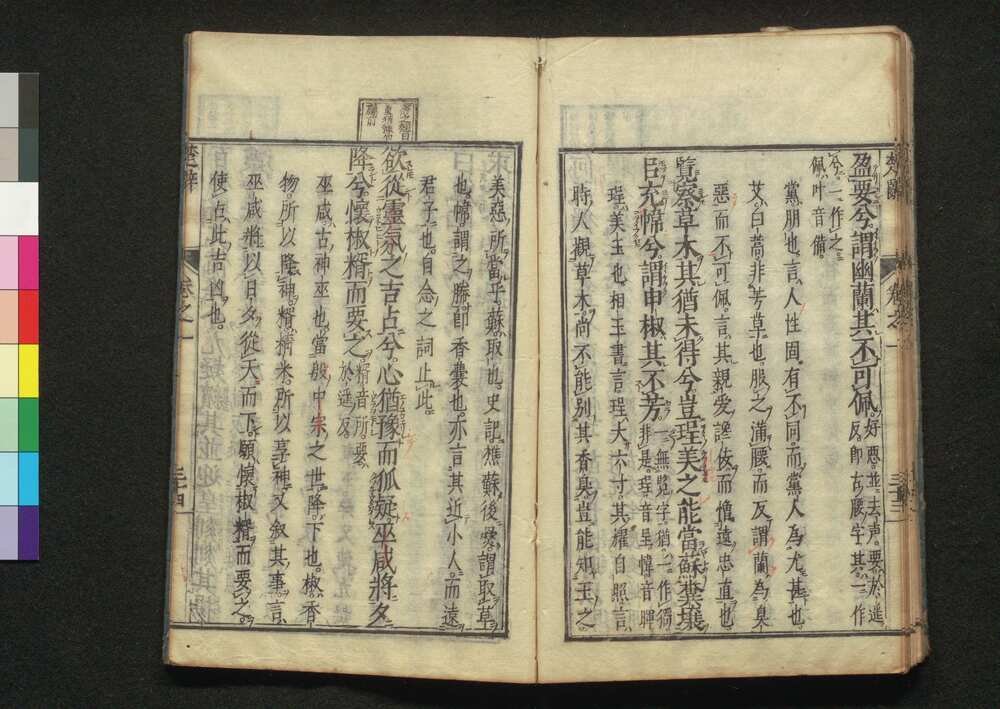 楚辭
卷之一
三十三
盈要兮謂幽蘭其不可佩好惡並去声要於遥反卽古腰字其一作
兮一作之
佩叶音備
黨朋也言人性固有不同而黨人為尤甚也
艾白蒿非芳草也服之滿腰而反謂蘭為臭
惡而不可佩言其親愛讒佞而憎遠忠直也
覽察草木其猶未得兮豈珵美之能當蘇糞壤
㠯充幃兮謂申椒其不芳一無覽字猶一作獨非是珵音呈幃音暉
珵美玉也相玉書言珵大六寸其耀自照言
時人觀草木尚不能別其香臭豈能知玉之
美惡所當乎蘇取也史記樵蘇後爨謂取草
也幃謂之幐卽香囊也亦言其近小人而遠
君子也自念之詞止此
欲從靈氛之吉占兮心猶豫而狐疑巫咸將夕
降兮懷椒糈而要之糈音所要於遥反
巫咸古神巫也當殷中宗之世降下也椒香
物所以降神糈精米所以享神又叙其事言
巫咸將以日夕從天而下願懷椒糈而要之
使占此吉凶也
楚辭
卷之一
三十四